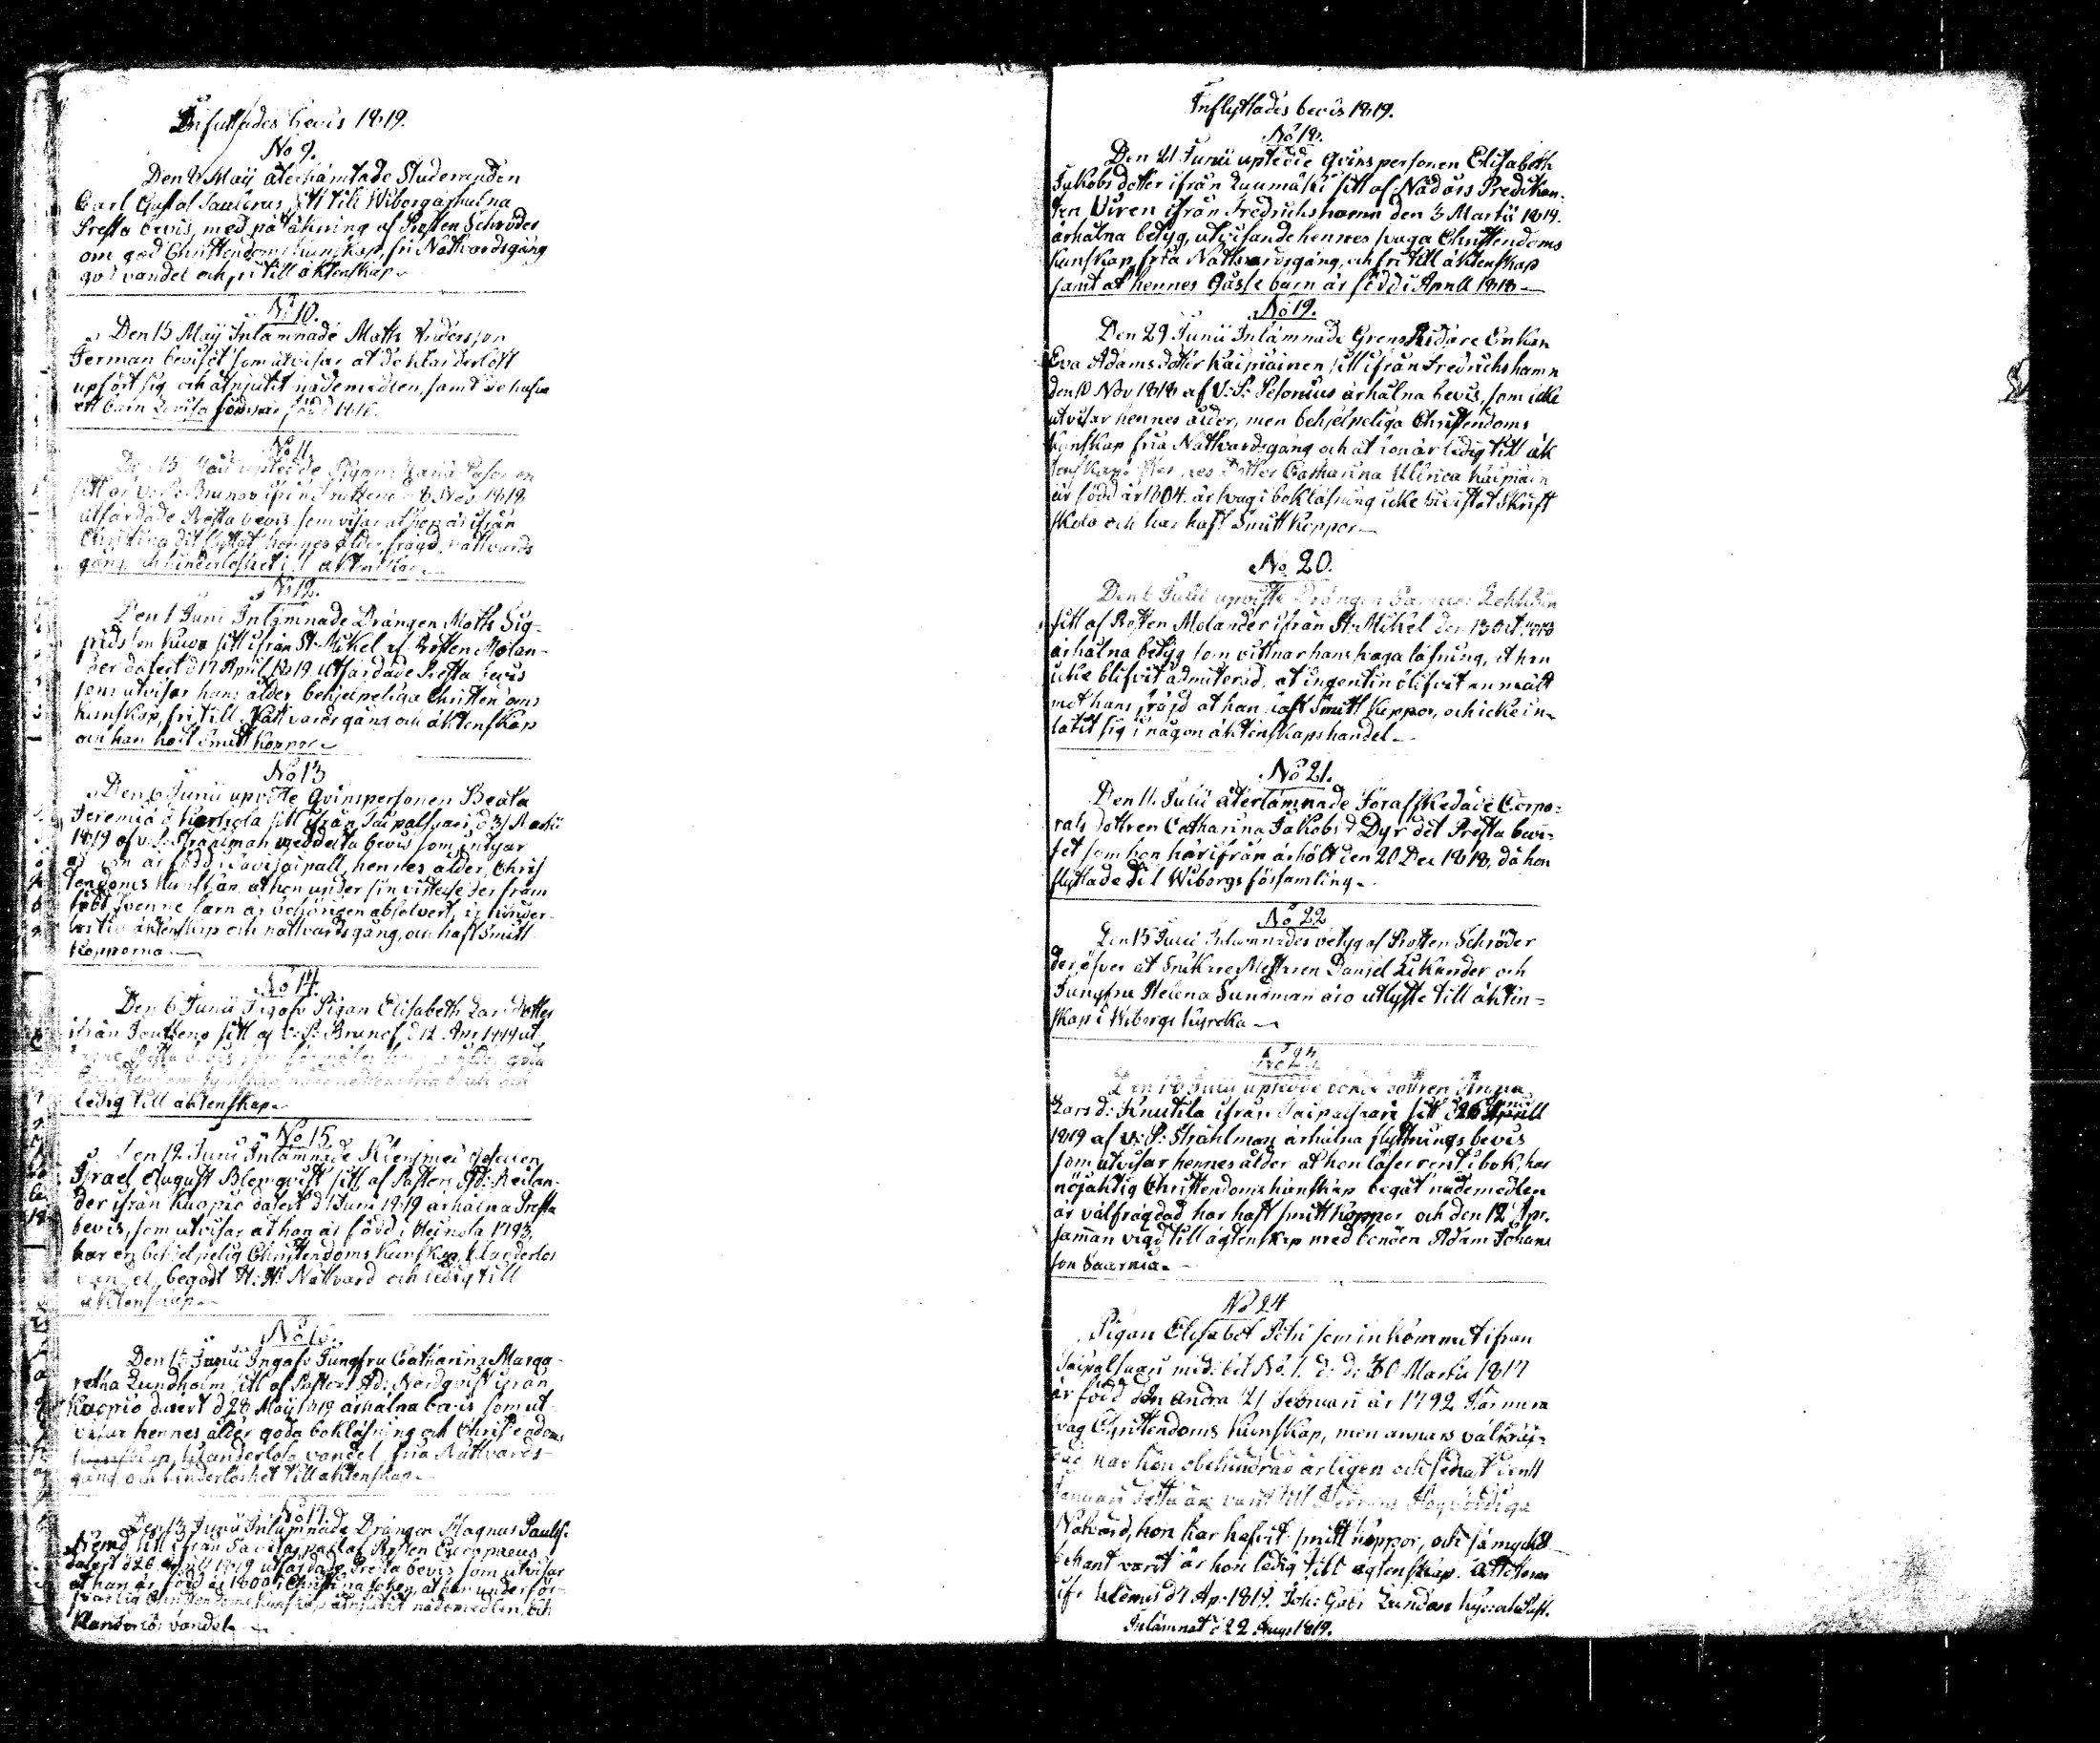 Inflyttades bevis 1819.
No 9.
Den 2 Maij återhämtade Studeranden
Carl Gustaf Paulinus sitt till Wiborg arhulna
Presta bevis, med påtäkning af Prosten Schröder
om god Christendoms kunskap, fri Nattvardsgång
god vandel och fri till äktenskap.
No 10.
Den 15 Maij Inlamnade Matts Andersson
German beviset som utvisar at de klanderlöst
upfört sig och åtnjutit nademedlen, samt de hafva
ett barn Lovisa född 1816.
No 11.
Den 15 Maij upteede Pigan Maria
sitt af V: P: Brunou ifrån 8 Nov 1818
utfärdade Presta bevis som visar at hon är ifrån
Christina dit flyttat, hennes ålder, frägd, nattvards
gång och hinderlöshet till äktenskap.
No 12.
Den 1 Junii Inlämnade Drängen Matts Sig-
fridsson Kuva sitt ifrån St. Mikel af Prosten Molan-
der datert d 17 April 1819 utfärdade Presta bevis
som utvisar hans ålder behjelpeliga Christendoms
kunskap, fri till Nattvardsgång och äktenskap
och han haft Smittkoppor.
No 13
Den 6 Junii upviste Qvinspersonen Beata
Jeremiæ d Karhola sitt ifrån Taipalsaari d 31 Martii
1819 af v: P: Strahlman meddelta bevis som intygar
at hon är född i Savitaipall, hennes ålder, Chris
tendoms kunskap, at hon under sin vistelse der fram
född tvenne barn är behörigen absolvert, är hinder-
lös till äktenskap och nattvardsgång, och haft Smitt
kopporna.
No 14.
Den 6 Junii Ingaf Pigan Elisabeth Larsdotter
ifrån Joutseno sitt af V: P: Brunou d 12 Apr 1819 ut
ålder goda
ledig till äktenskap.
No 15.
Den 12 Junii Inlämnade Klensmed Gesellen
Israel August Blomqvist sitt af Pastors Ad: Reilan-
der ifrån Kuopio datert d 1 Junii 1819 arhalna Presta
bevis, som utvisar at han är född i Heinola 1793,
har en behjelpelig Christendoms kunskap, klanderlös
vandel, begådt H: H: Nattvard och ledig till
äktenskap.
No 16.
Den 13 Junii Ingaf Jungfru Catharina Marga-
retha Lundholm sitt af Pastors Ad: Nordqvist ifrån
Kuopio datert d 28 Maij 1819 arhalna bevis som ut-
visar hennes ålder goda bokläsning och Christendoms
kunskap, klanderlösa vandel, fria Nattvards-
gång och hinderlöshet till äktenskap.
No 17.
Den 13 Junii Inlamnade Drängen Magnus Paulss.
sitt ifrån Savitaipall af Prosten Europaeus
datert d 26 April 1819 utfärdade Presta bevis som utvisar
at han är född år 1800 i Christina soken, at han under för-
svarlig Christendoms kunskap åtnjutit nådemedlen, och
klanderlös vandel.
Inflyttades bevis 1819.
No 18.
Den 21 Junii upteede Qvinspersonen Elisabeth
Jakobsdotter ifrån Luumäki sitt af Nådårs Predikan-
ten Viren ifrån Fredrichshamn den 3 Martii 1819.
arhalna betyg, utvisande hennes svaga Christendoms
kunskap, fria Nattvardsgång, och fri till äktenskap
samt at hennes Gåsse barn är född i Aprill 1818.
No 19.
Den 29 Junii Inlämnade GrensRidare Enkan
Eva Adamsdotter Kaipiainen sitt ifrån Fredrichshamn
den 10 Nov 1818 af V: P: Pesonius arhalna bevis, som icke
utvisar hennes ålder, men behjelpeliga Christendoms
kunskap fria Nattvardsgång och at hon är ledig till äk
tenskap. Hennes dotter Catharina Ulrica Kaipiain
är född år 1804. är svag i bokläsning icke bevistat Skrift
skola och har haft Smittkoppor.
No 20.
Den 6 Julii upviste Drängen Samuel Lehkoin
sitt af Prosten Molander ifrån St. Mikel den 13 Oct 1818
arhalna betyg som vittnar hans svaga läsning, at han
icke blifvit admitterad, at ingenting blifvit anmält
mot hans frägd at han haft Smittkoppor, och icke in-
latit sig i någon äktenskapshandel.
No 21.
Den 11 Julii återlämnade Förafskedade Corpo-
rals dottren Catharina Jakobs d Dyr det Presta bevi-
set som hon härifrån arhölt den 20 Dec 1818, då hon
flyttade till Wiborgs församling.
No 22
Den 15 Julii Inlamnades betyg af Prosten Schröder
deröfver at Snikare Mästaren Daniel Likander och
Jungfru Helena Sundman äro utlyste till äkten-
skap i Wiborgs kyrcka.
No 23.
Den 18 Julii upteede bonde dottren Anna
Lars d: Knutila ifrån Taipalsaari sitt d 26 Aprill
1819 af V: P: Strahlman arhalna flyttnings bevis
som utvisar hennes ålder at hon läser rent i bok, har
nöjaktig Christendoms kunskap begåt nådemedlen
är välfrägdad har haft smittkoppor och den 12 Apr.
samman vigd till ägtenskap med bonden Adam Johans
son Saarnia.
No 24
Pigan Elisabet Petri som inkommit ifrån
Taipalsaari med bet No. 1. d: d: 30 Martii 1817
är född den andra 2/ Februarii år 1792 Har mera
svag Christendoms kunskap, men annars välfräj-
dad har hon obehindrad årligen och senast den
Januarii detta år varit till Herrans Högvördiga
Natvard, hon har hafvit smittkoppor, och så mycket
bekant varit är hon ledig till ägtenskap. Attesteras
ifr. Klemis d 7 Ap. 1819. Joh: Gabr Lundan Kyrcoh Past.
Inlämnat d 22 Aug 1819.